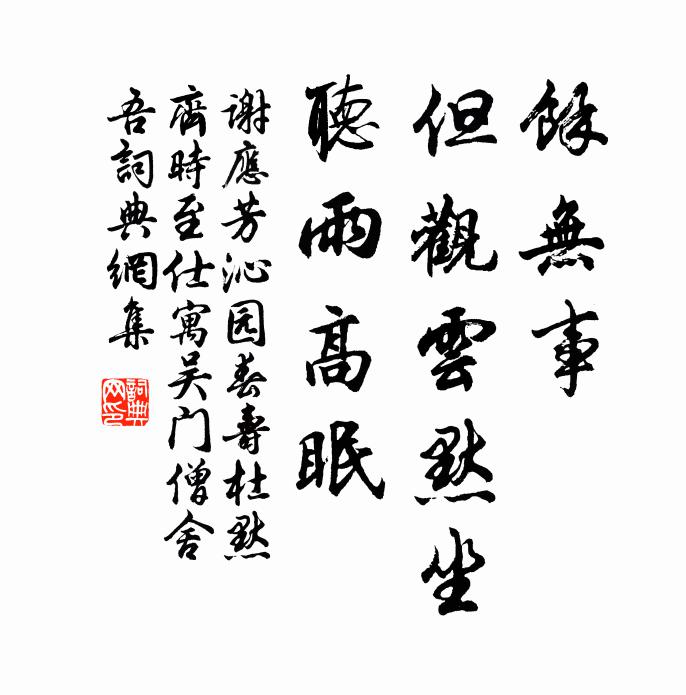 餘無事
但觀雲默坐
聽雨高眠
謝應芳沁园春壽杜默
齊時至仕寓吴门僧舍
吾詞典網集
詞典网印